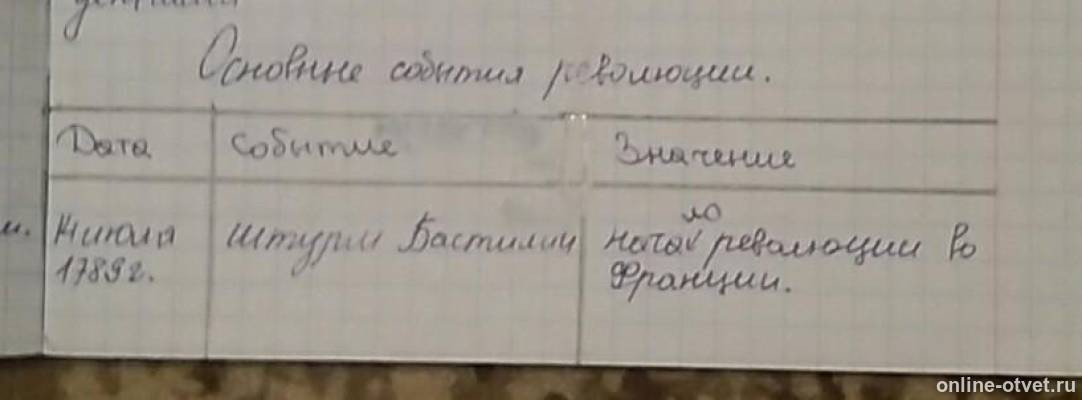 Основные события революции.
Дата событие Значение
14июля штурм Бастилии начало революции во
1789г. Франции.
online-otvet.ru